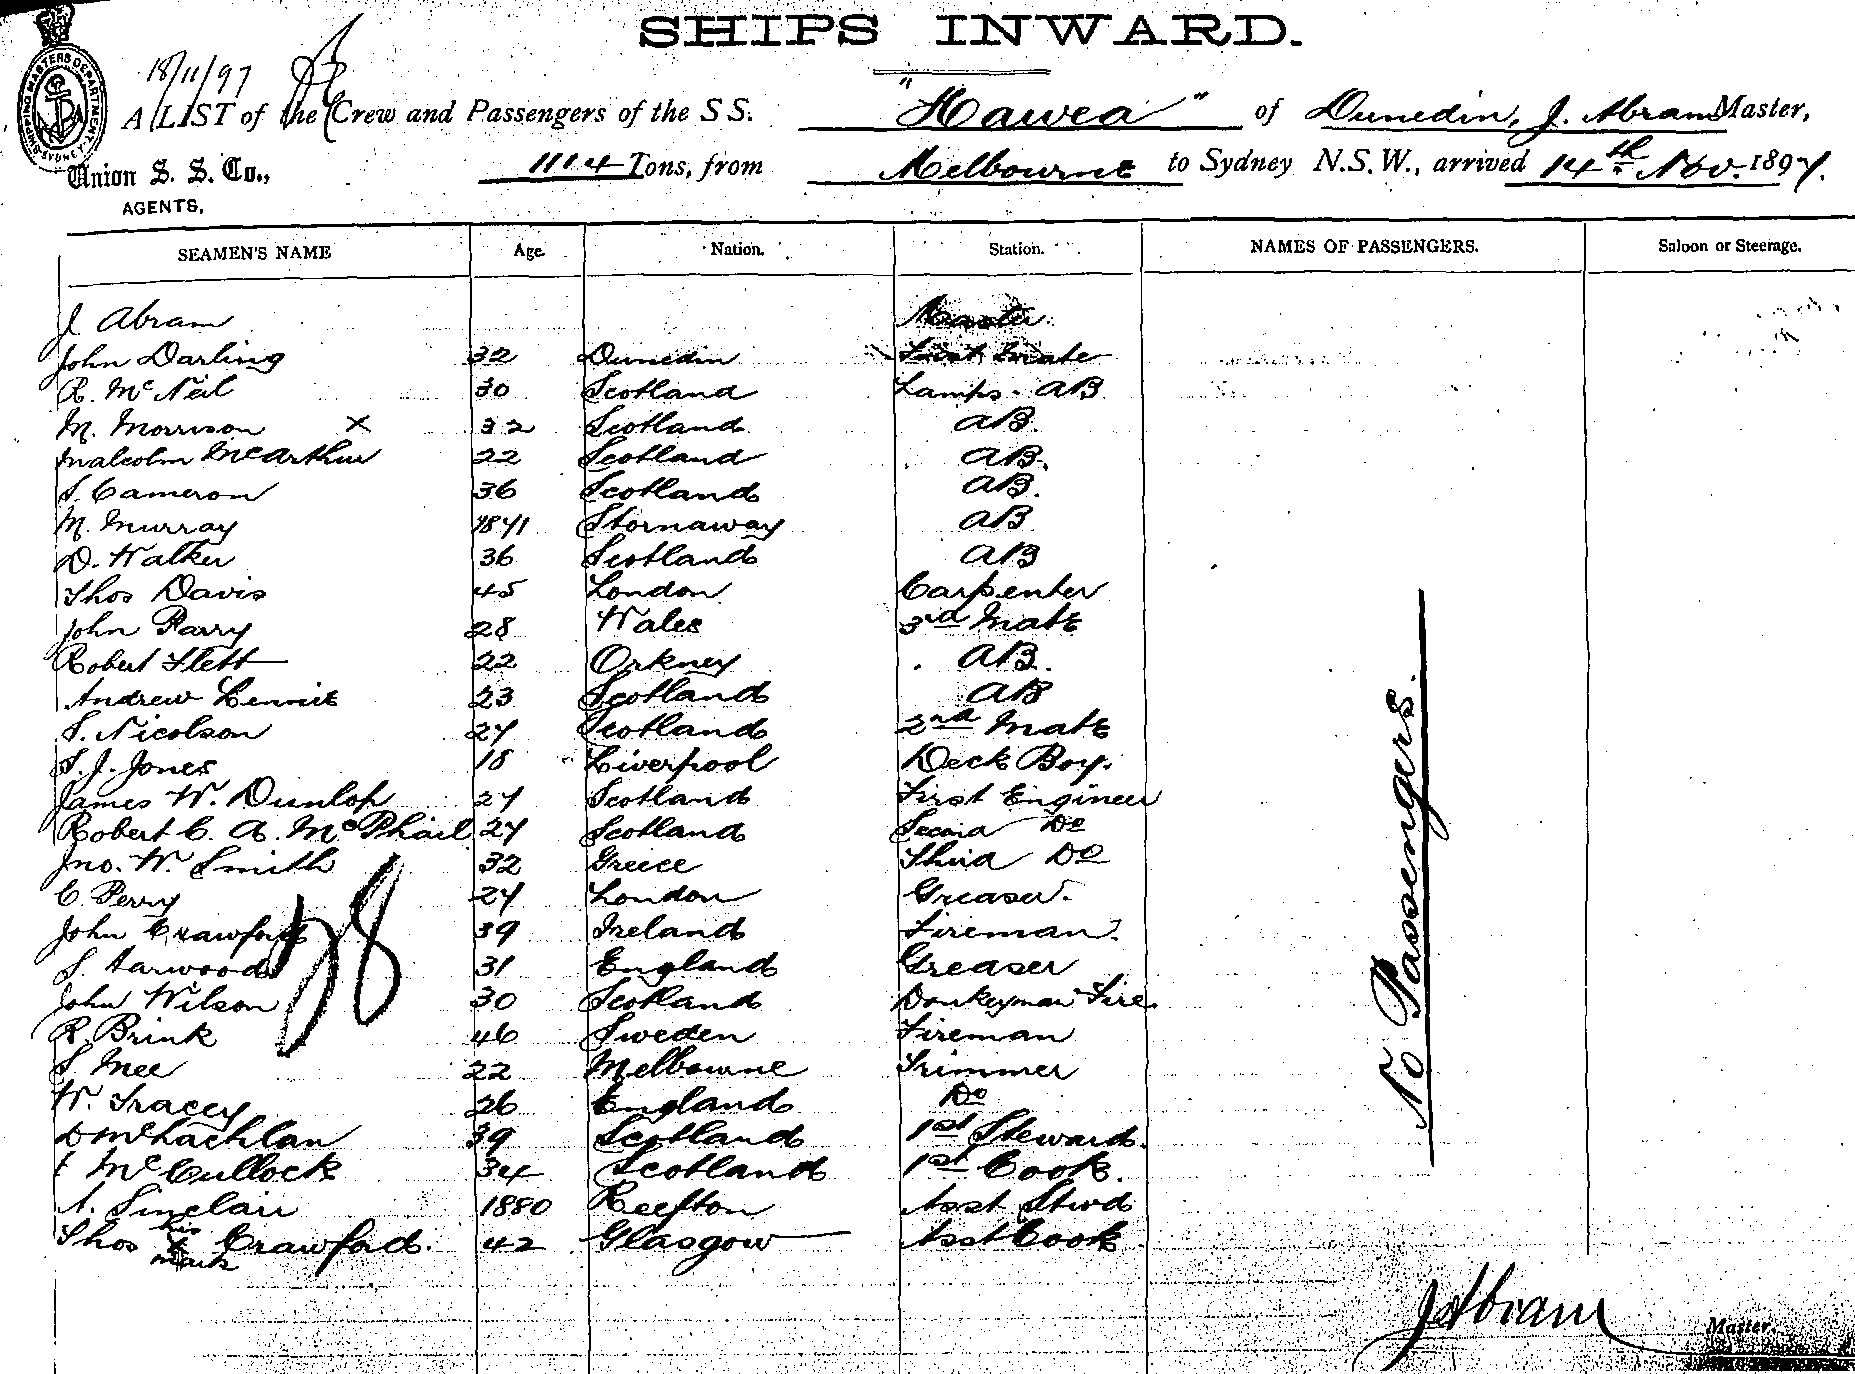 SHIPS INWARD.
18/11/97
SHIPPING MASTERS DEPARTMENT SYDNEY
A LIST of the Crew and Passengers of the S S. "Hawea" of Dunedin, J. Abram Master,
Union S. S. Co., 1114 Tons, from Melbourne to Sydney N.S.W., arrived 14th Nov. 1897.
AGENTS,
SEAMEN'S NAME Age. Nation. Station. NAMES OF PASSENGERS. Saloon or Steerage.
J Abram Master
John Darling 32 Dunedin First Mate
R. McNeil 30 Scotland Lamps. AB
M. Morrison x 32 Scotland AB.
Malcolm McArthur 22 Scotland AB.
S. Cameron 36 Scotland AB.
M. Murray 1871 Stornaway AB
D. Walker 36 Scotland AB
Thos Davis 45 London Carpenter
John Parry 28 Wales 3rd Mate
Robert Flett 22 Orkney AB.
Andrew 23 Scotland AB
S. Nicolson 27 Scotland 2nd Mate
S. J. Jones 18 Liverpool Deck Boy.
James W. Dunlop 27 Scotland First Engineer
Robert C. A. McPhail 27 Scotland Second Do
Jno. W. Smith 32 Greece Third Do
C Perry 27 London Greaser.
John Crawford 39 Ireland Fireman.
S. Harwood 31 England Greaser
John Wilson 30 Scotland Donkeyman Fire.
R. Brink 46 Sweden Fireman
S. Mee 22 Melbourne Trimmer
W. Tracey 26 England Do
D McLachlan 39 Scotland 1st Steward.
McCullock 34 Scotland 1st Cook.
A. Sinclair 1880 Reefton Asst Stwd
Thos his x mark Crawford. 42 Glasgow Asst Cook
28
No Passengers.
J Abram
Master.